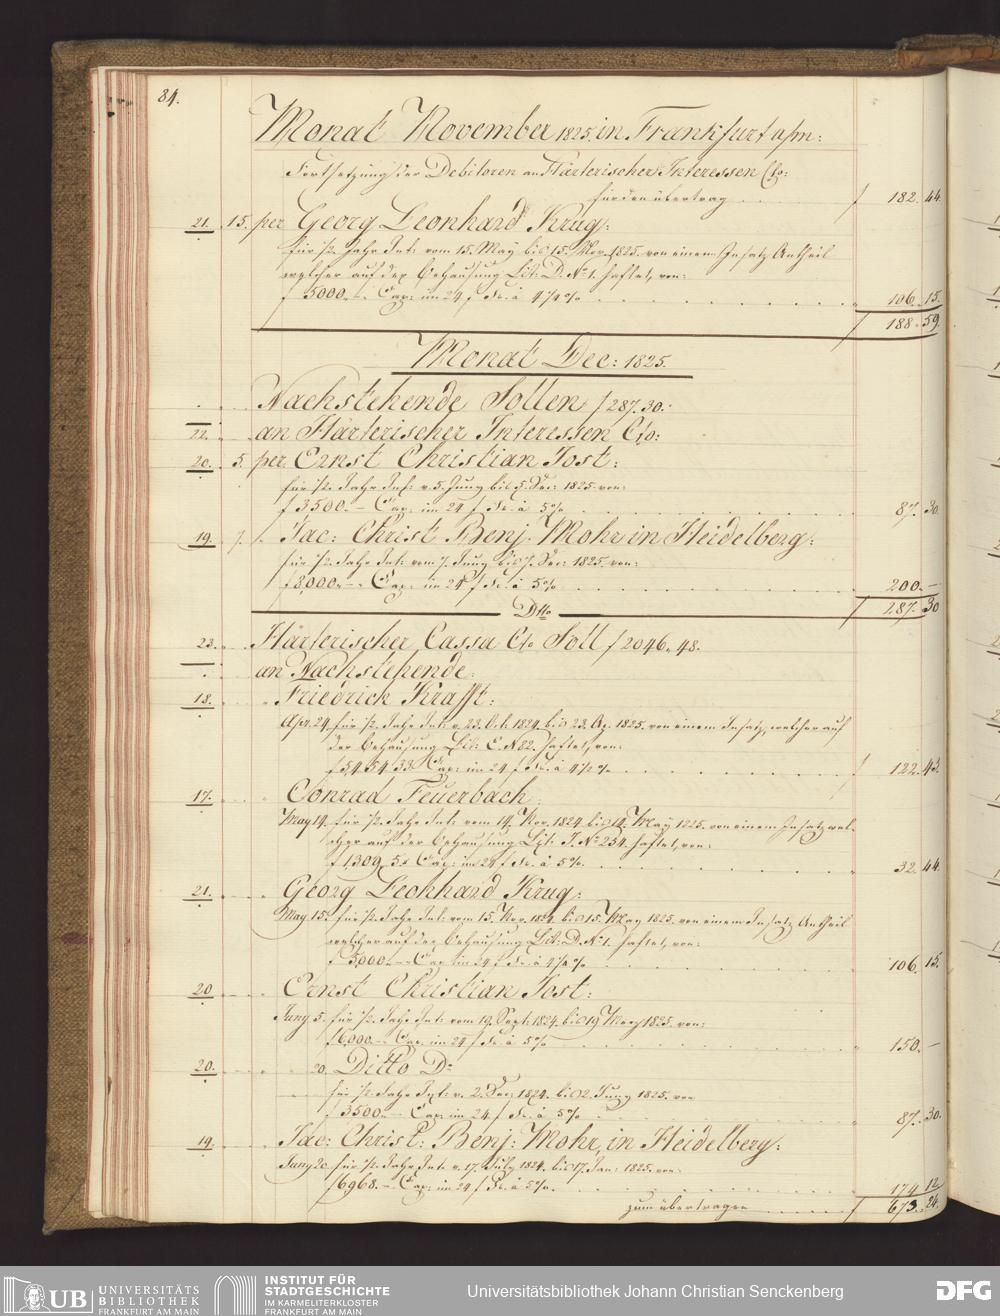 84.
Monat November 1825. in Frankfurt a/m:
Fortsetzung der Debitoren an Härterischer Interessen Cto:
für den übertrag . . . . f 182. 44.
21. 15. per Georg Leonhard Krug:
für ½ Jahr Int: vom 15. May bis 15. Nov. 1825. von einem Insatz Antheil
welcher auf der Behausung Lit: D. No 1. haftet, von:
f 5000. – Cap: im 24 f Fs. à 4¼ % . . . . 106. 15.
f 188. 59.
Monat Dec: 1825.
Nachstehende Sollen f 287. 30.
22. an Härterischer Interessen Cto:
20. 5. per Ernst Christian Jost:
für ½ Jahr Int: v. 5. Juny bis 5. Dec: 1825. von:
f 3500. – Cap: im 24 f Fs. à 5 % . . . . 87. 30.
19. 7. Jac: Christ Benj. Mohr in Heidelberg:
für ½ Jahr Int: vom 7. Juny bis 7. Dec: 1825. von:
f 8,000. – Cap: im 24 f Fs. à 5 % . . . . 200. –
f 287. 30
Dtto
23. Härterischer Cassa Cto Soll f 2046. 48.
an Nachstehende
18. Friedrich Krafft:
Apr. 24. für ½ Jahr Int: v. 23. Oct. 1824. bis 23. Ap. 1825. von einem Insatz, welcher auf
der Behausung Lit: E. N 82. haftet, von:
f 5454. 33. Cap: im 24 f Fs. à 4½ % . . . . f 122. 43.
17. Conrad Feuerbach.
May 14. für ½ Jahr Int: vom 14. Nov. 1824. bis 14. May 1825. von einem Insatz wel-
cher auf der Behausung Lit: J. No 234. haftet, von:
f 1,309. 5 Cap: im 24 f Fs. à 5 %. . . . . 32. 44.
21. Georg Leonhard Krug:
May 15. für ½ Jahr Int: vom 15. Nov. 1824. bis 15. May 1825. von einem Insatz Antheil
welcher auf der Behausung Lit: D. No 1. haftet, von:
f 5000. – Cap im 24 f Fs. à 4¼ % . . . . 106. 15.
20 Ernst Christian Jost:
Juny 5. für ½ Jahr Int: vom 19. Sept: 1824. bis 19 März 1825. von:
f 6,000. – Cap. im 24 f Fs. à 5 % . . . . 150. –
20. 20. Ditto Do
für ½ Jahr Int: v. 2. Dec: 1824. bis 2. Juny 1825. von
f 3500. – Cap: im 24. f Fs. à 5 % . . . . 87. 30.
19. Jac: Christ: Benj: Mohr, in Heidelberg:
Juny 20 für ½ Jahr Int: v. 17. July 1824. bis 17. Jan: 1825. von:
f 6968. – Cap: im 24 f Fs. à 5 %. . . . . 174. 12
zum übertragen . . . . f 673. 24.
UB UNIVERSITÄTS BIBLIOTHEK FRANKFURT AM MAIN
INSTITUT FÜR STADTGESCHICHTE IM KARMELITERKLOSTER FRANKFURT AM MAIN
Universitätsbibliothek Johann Christian Senckenberg
DFG